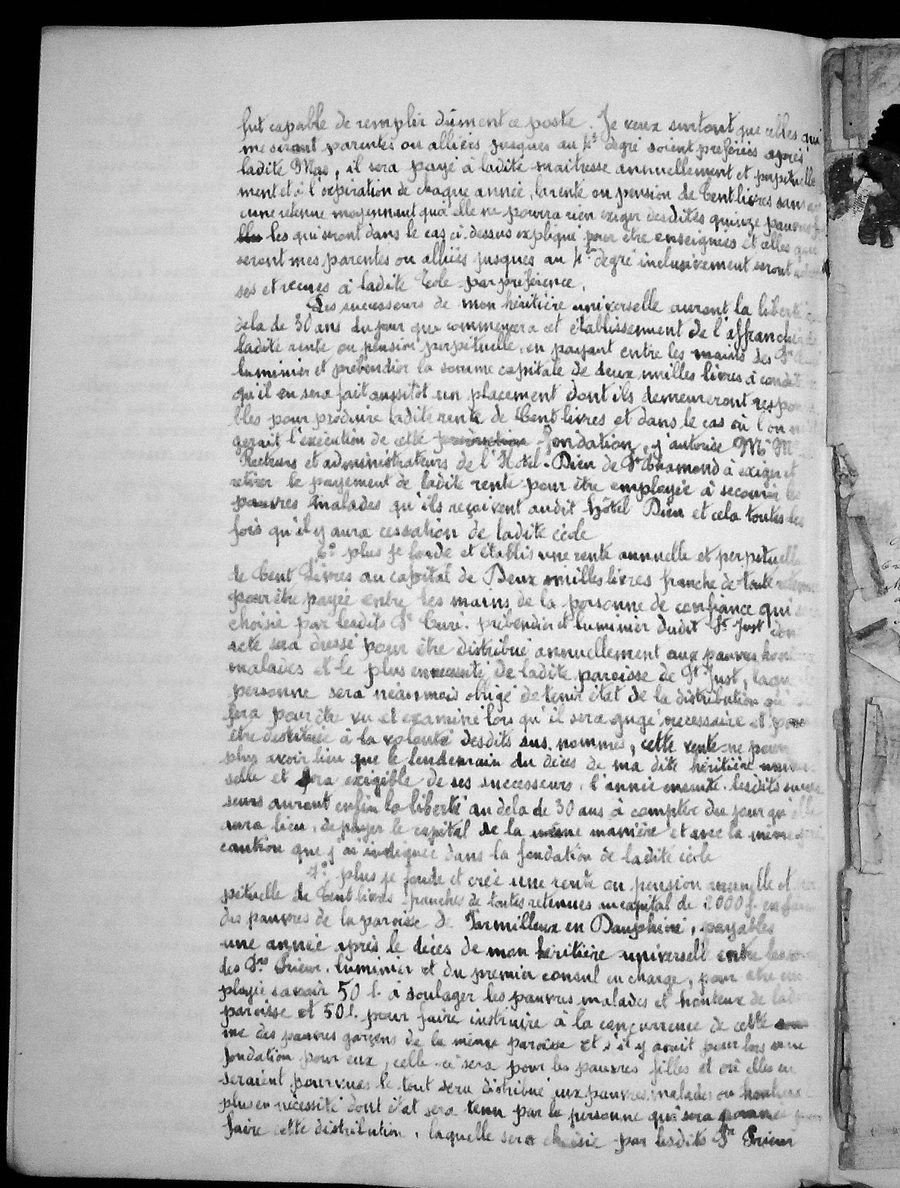 fut capable de remplir dûment ce poste. Je veux surtout que celles qui
me seront parentes ou alliées jusques au 4e degré soient préférées après
ladite Mas, il sera payé à ladite maitresse annuellement et perpétuelle
ment et à l'expiration de chaque année, la rente ou pension de Cent livres sans
une retenue moyennant quoi elle ne pourra rien exiger desdites quinze pauvres
les qui seront dans le cas ci-dessus expliqué pour être enseignées et celles que
seront mes parentes ou alliées jusques au 4e degré inclusivement seront
ses et reçues à ladite Ecole par préférence.
Les successeurs de mon héritière universelle auront la liberté
dela de 30 ans du jour que commencera cet établissement de l'affranchir
ladite rente ou pension perpétuelle, en payant entre les mains des Srs
luminier et prébendier la somme capitale de deux milles livres à condit
qu'il en sera fait aussitôt un placement dont ils demeureront respon
bles pour produire ladite rente de Cent livres et dans le cas où l'on
gerait l'exécution de cette fondation, j'autorise Mrs
Recteurs et administrateurs de l'Hotel-Dieu de St Chamond à exiger et
retirer le payement de ladite rente pour être employée à secourir les
pauvres malades qu'ils reçoivent audit hôtel Dieu et cela toutes les
fois qu'il y aura cessation de ladite école
plus je fonde et établis une rente annuelle et perpétuelle
de Cent Livres au capital de Deux milles livres franche de toute
pour être payée entre les mains de la personne de confiance qui
choisie par lesdits Sr Curé, prébendier et luminier dudit St Just dont
acte sera dressé pour être distribué annuellement aux pauvres honteux
malades et le plus en nécessité de ladite paroisse de St Just, laquelle
personne sera néanmois obligé de tenir état de la distribution qu'
fera pour être vu et examiné lors qu'il sera jugé necessaire et pour
être destituée à la volonté desdits sus-nommés, cette rente ne pourra
plus avoir lieu que le lendemain du décès de ma dite héritière univer
selle et sera exigible de ses successeurs l'année ensuite. lesdits succes
seurs auront enfin la liberté au dela de 30 ans à compter du jour qu'elle
aura lieu, de payer le capital de la même manière et avec la même
caution que j'ai indiquée dans la fondation de ladite école
plus je fonde et crée une rente ou pension annuelle et per
pétuelle de Cent livres franches de toutes retenues au capital de 2000 f. en faveur
des pauvres de la paroisse de Tarmilleux en Dauphiné, payables
une année après le décès de mon héritière universelle entre les mains
des Srs Prieur, luminier et du premier consul en charge, pour être em
ployée savoir 50 l. à soulager les pauvres malades et honteux de ladite
paroisse et 50 l. pour faire instruire à la concurrence de cette
me des pauvres garçons de la même paroisse et s'il y avait pour lors une
fondation pour eux, celle-ci sera pour les pauvres filles et où elles en
seraient pourvues le tout sera distribué aux pauvres malades ou honteux
plus en nécessité dont état sera tenu par la personne qui sera nommée pour
faire cette distribution, laquelle sera choisie par lesdits Sr Prieur